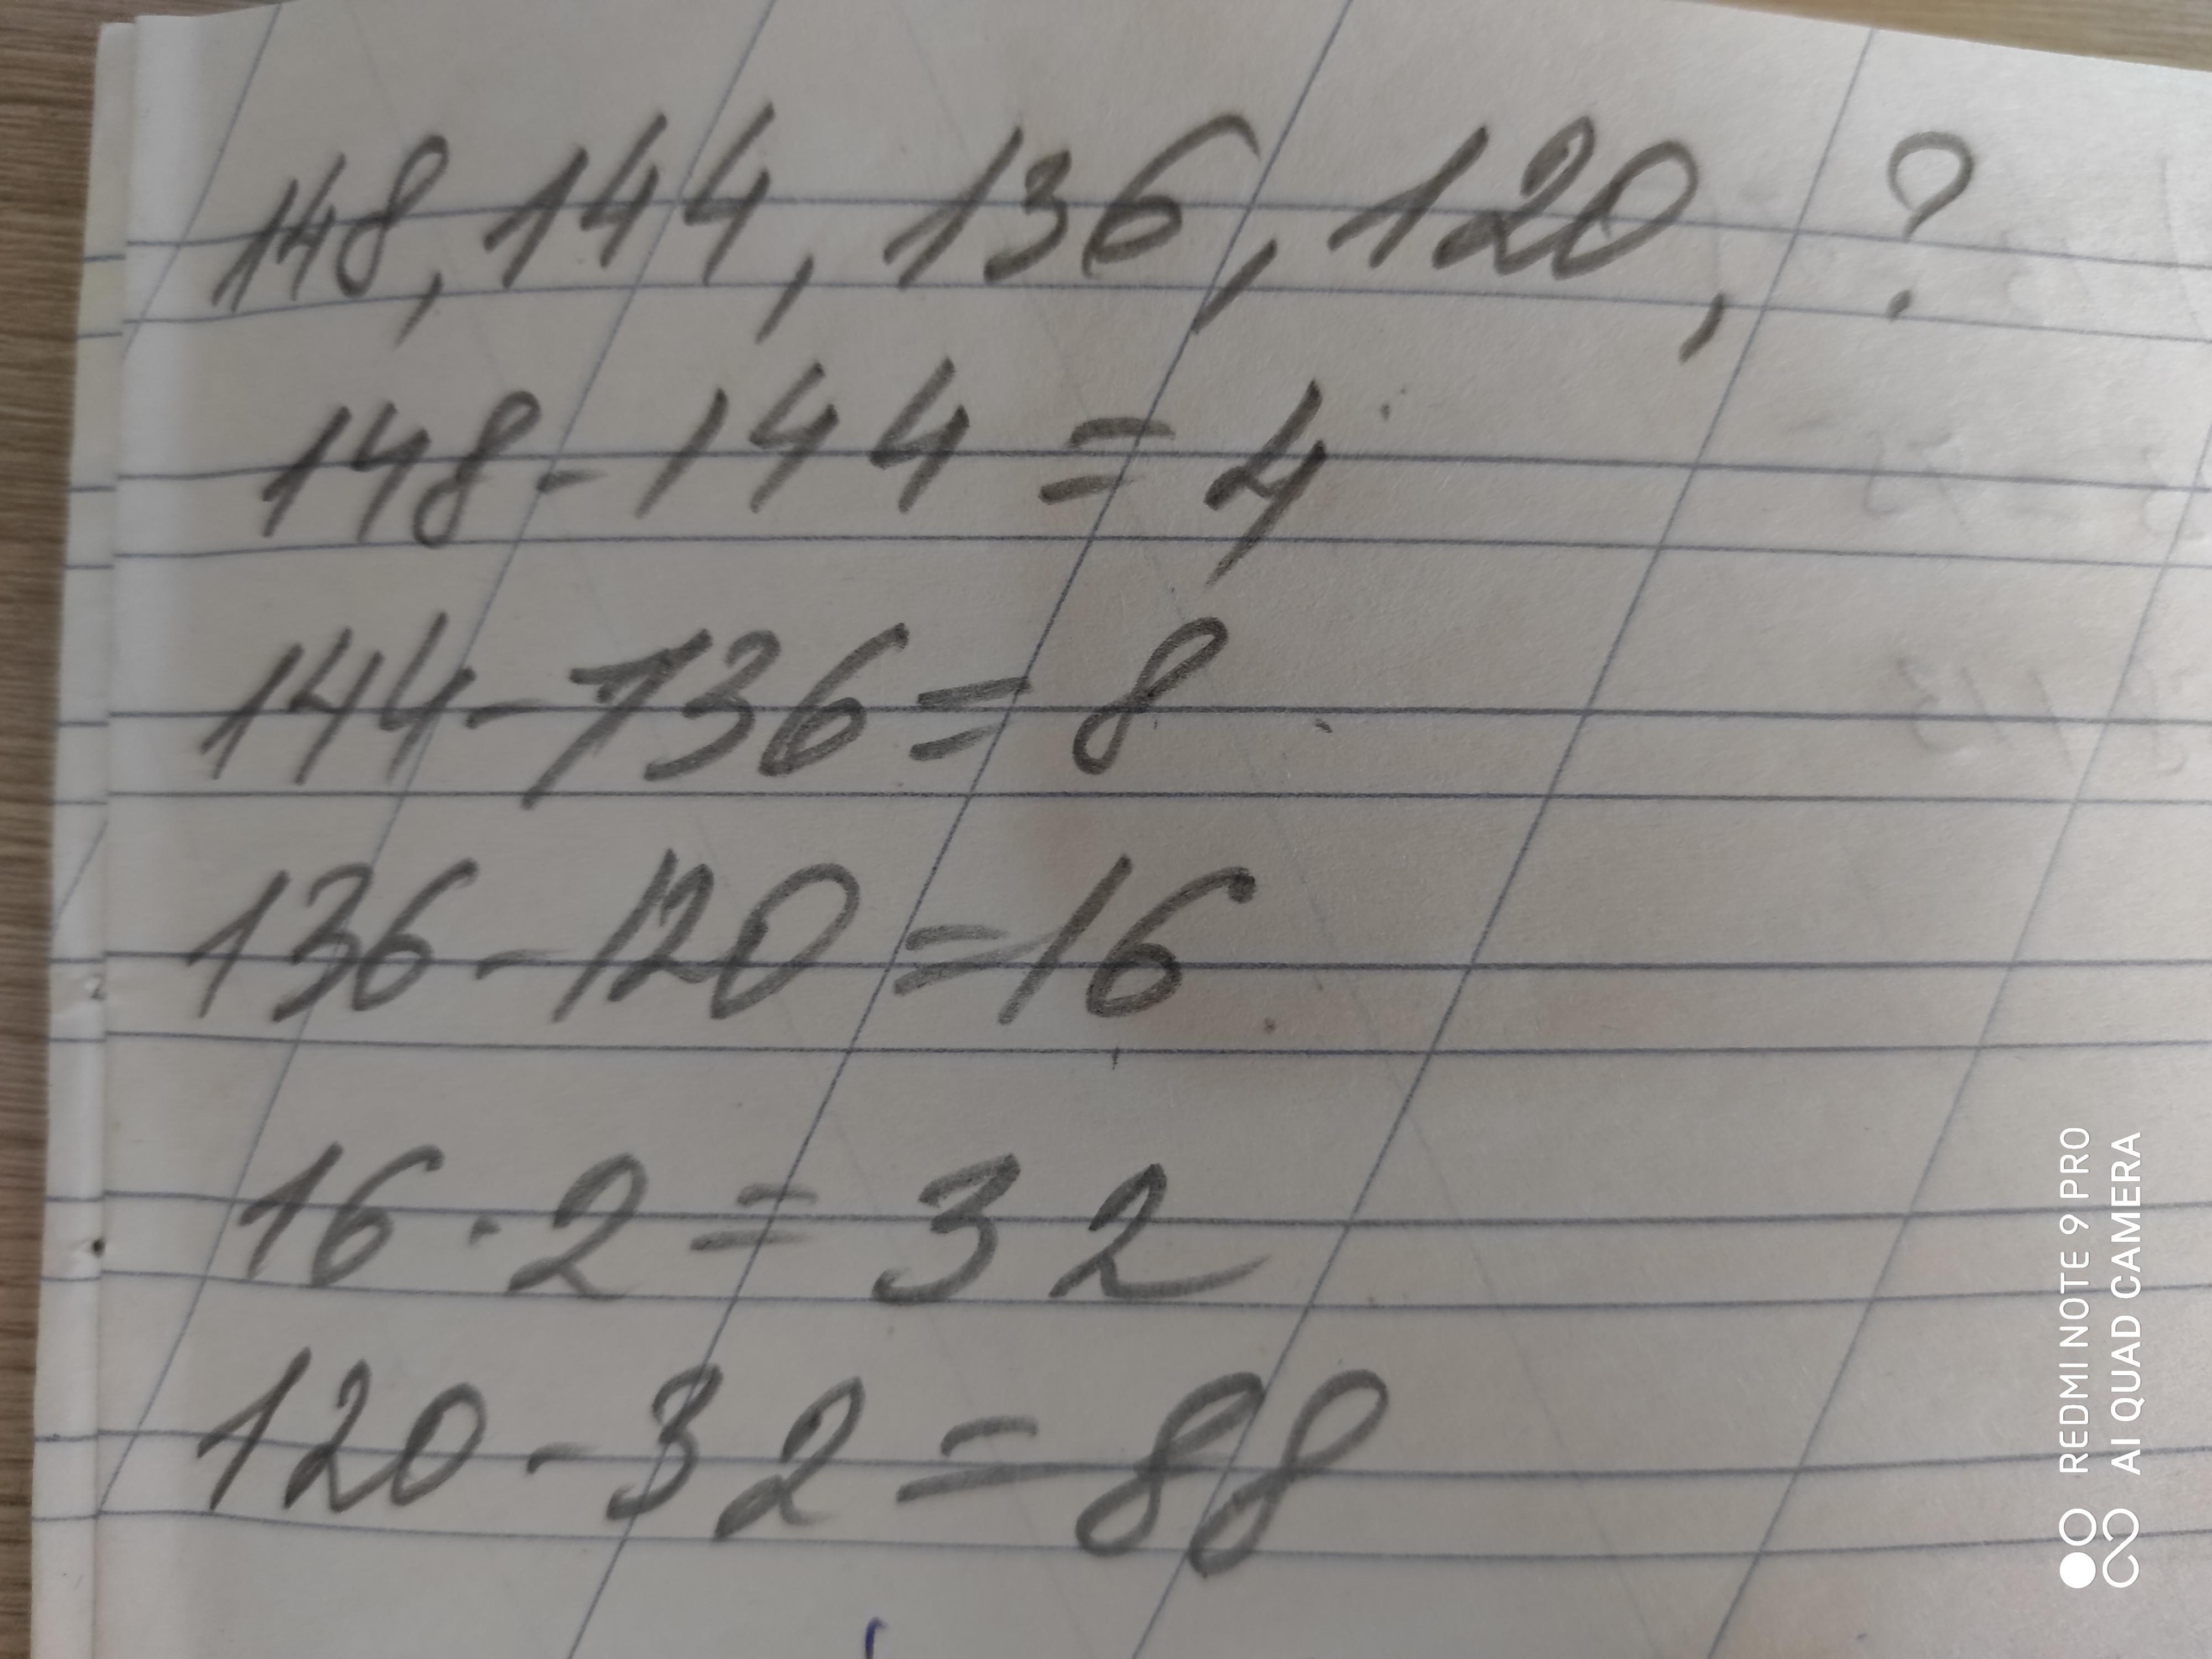 148, 144, 136, 120, ?
148 - 144 = 4
144 - 136 = 8
136 - 120 = 16
16 · 2 = 32
120 - 32 = 88
REDMI NOTE 9 PRO
AI QUAD CAMERA